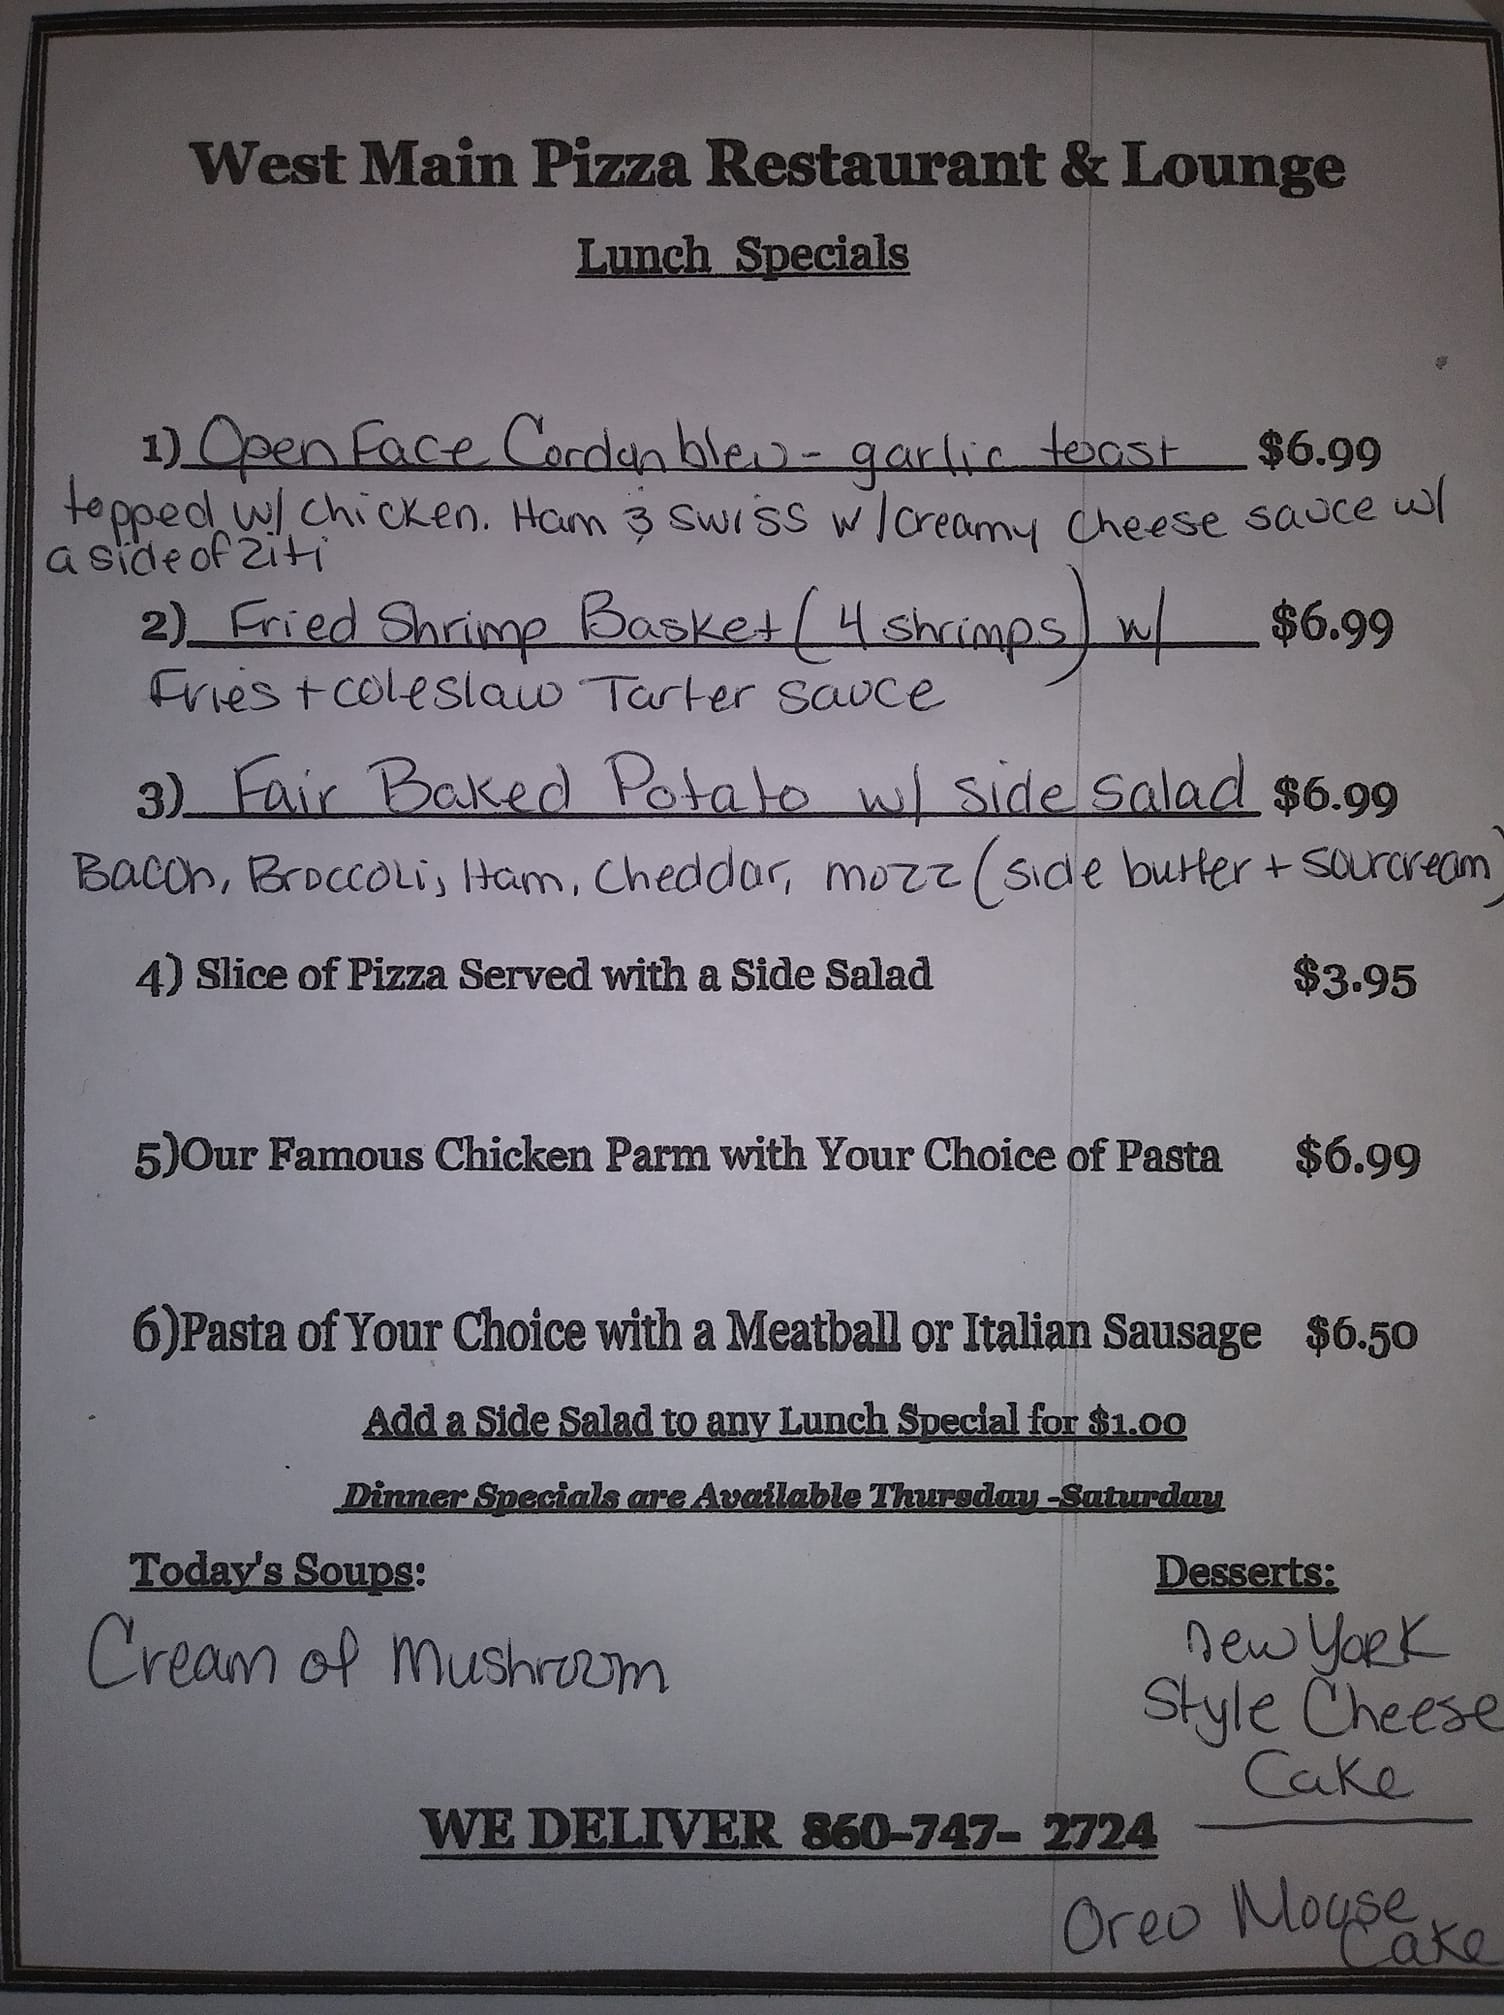 West Main Pizza Restaurant & Lounge
Lunch Specials
1) Open Face Cordan bleu - garlic toast $6.99
topped w/ chicken. Ham & swiss w/creamy cheese sauce w/
a side of ziti
2) Fried Shrimp Basket (4 shrimps) w/ $6.99
Fries + coleslaw Tarter sauce
3) Fair Baked Potato w/ side salad $6.99
Bacon, Broccoli, Ham, cheddar, mozz (side butter + sourcream)
4) Slice of Pizza Served with a Side Salad $3.95
5)Our Famous Chicken Parm with Your Choice of Pasta $6.99
6)Pasta of Your Choice with a Meatball or Italian Sausage $6.50
Add a Side Salad to any Lunch Special for $1.00
Dinner Specials are Available Thursday -Saturday
Today's Soups:
Cream of Mushroom
Desserts:
New York
Style Cheese
Cake
WE DELIVER 860-747- 2724
Oreo Mouse
Cake